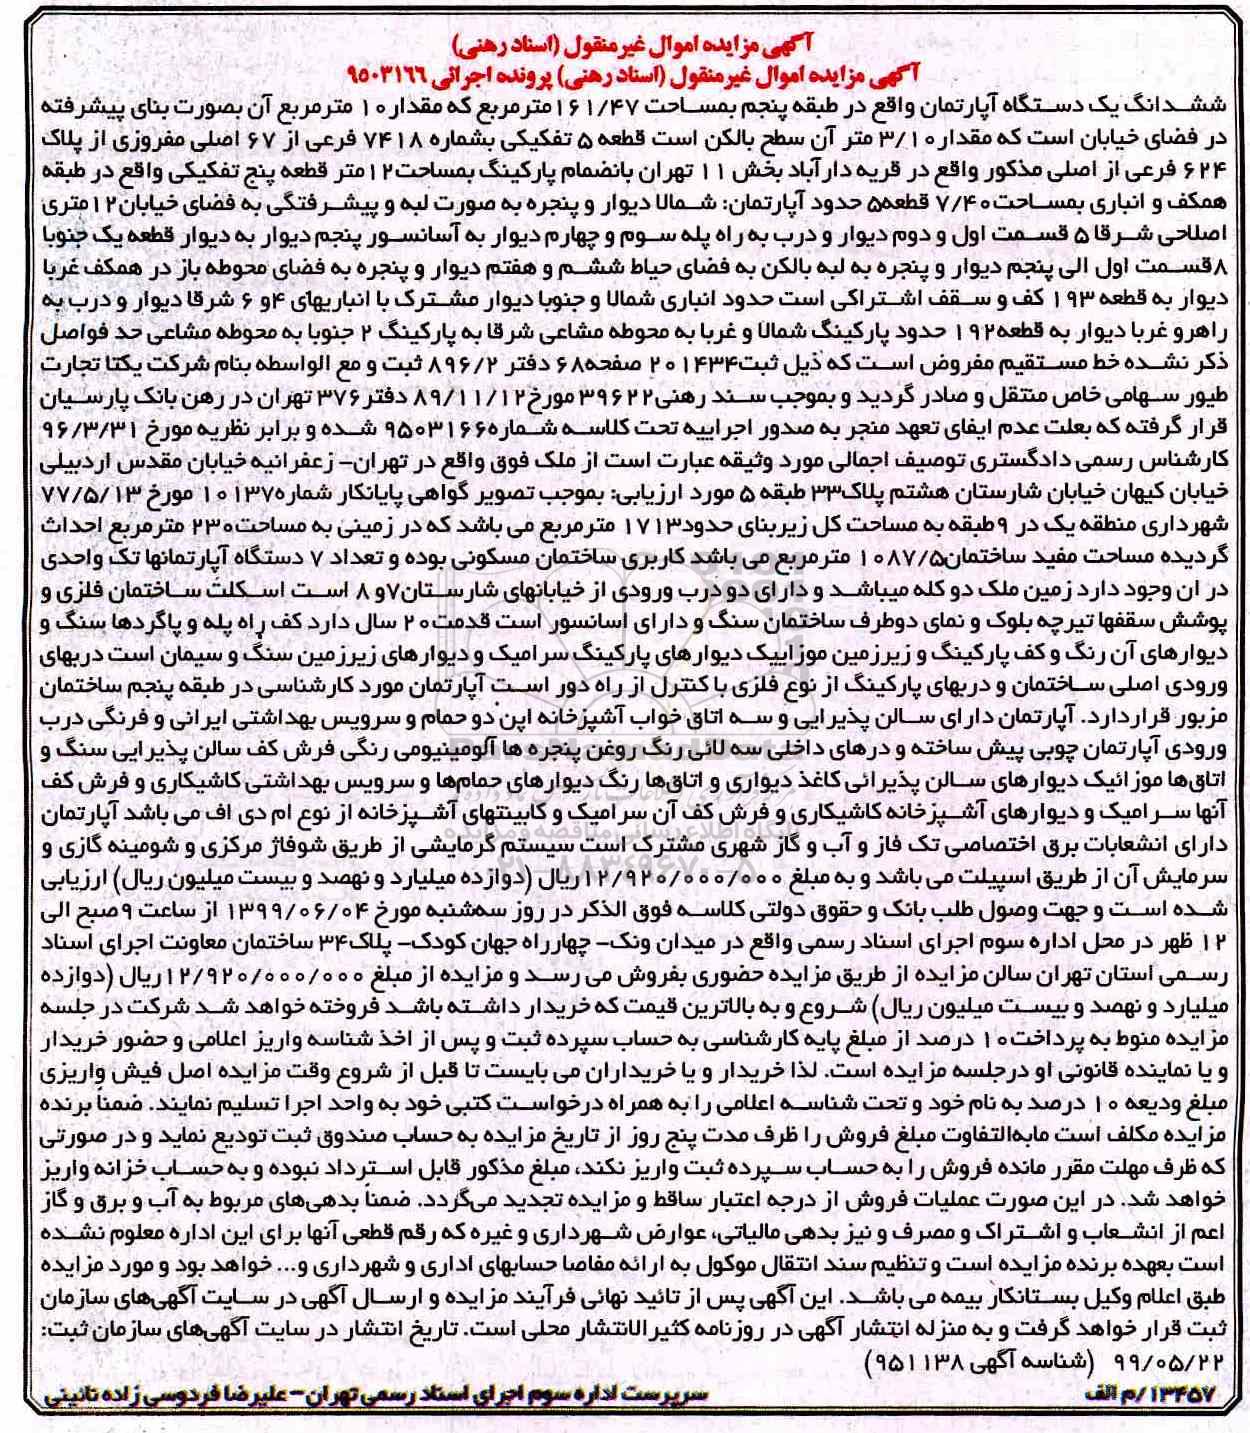 آگهی مزایده اموال غیرمنقول (اسناد رهنی)
آگهی مزایده اموال غیرمنقول (اسناد رهنی) پرونده اجرائی ۹۵۰۳۱۶۶
ششدانگ یک دستگاه آپارتمان واقع در طبقه پنجم بمساحت ۱۶۱/۴۷مترمربع که مقدار۱۰ مترمربع آن بصورت بنای پیشرفته
در فضای خیابان است که مقدار۳/۱۰ متر آن سطح بالکن است قطعه ۵ تفکیکی بشماره ۷۴۱۸ فرعی از ۶۷ اصلی مفروزی از پلاک
۶۲۴ فرعی از اصلی مذکور واقع در قریه دارآباد بخش ۱۱ تهران بانضمام پارکینگ بمساحت۱۲متر قطعه پنج تفکیکی واقع در طبقه
همکف و انباری بمساحت۷/۴۰ قطعه۵ حدود آپارتمان: شمالا دیوار و پنجره به صورت لبه و پیشرفتگی به فضای خیابان۱۲متری
اصلاحی شرقا ۵ قسمت اول و دوم دیوار و درب به راه پله سوم و چهارم دیوار به آسانسور پنجم دیوار به دیوار قطعه یک جنوبا
۸قسمت اول الی پنجم دیوار و پنجره به لبه بالکن به فضای حیاط ششم و هفتم دیوار و پنجره به فضای محوطه باز در همکف غربا
دیوار به قطعه ۱۹۳ کف و سقف اشتراکی است حدود انباری شمالا و جنوبا دیوار مشترک با انباریهای ۴و ۶ شرقا دیوار و درب به
راهرو غربا دیوار به قطعه۱۹۲ حدود پارکینگ شمالا و غربا به محوطه مشاعی شرقا به پارکینگ ۲ جنوبا به محوطه مشاعی حد فواصل
ذکر نشده خط مستقیم مفروض است که ذیل ثبت۲۰۱۴۳۴ صفحه۶۸ دفتر ۸۹۶/۲ ثبت و مع الواسطه بنام شرکت یکتا تجارت
طیور سهامی خاص منتقل و صادر گردید و بموجب سند رهنی۳۹۶۲۲ مورخ۸۹/۱۱/۱۲ دفتر۳۷۶ تهران در رهن بانک پارسیان
قرار گرفته که بعلت عدم ایفای تعهد منجر به صدور اجراییه تحت کلاسه شماره۹۵۰۳۱۶۶ شده و برابر نظریه مورخ ۹۶/۳/۳۱
کارشناس رسمی دادگستری توصیف اجمالی مورد وثیقه عبارت است از ملک فوق واقع در تهران- زعفرانیه خیابان مقدس اردبیلی
خیابان کیهان خیابان شارستان هشتم پلاک۳۳ طبقه ۵ مورد ارزیابی: بموجب تصویر گواهی پایانکار شماره۱۰۱۳۷ مورخ ۷۷/۵/۱۳
شهرداری منطقه یک در ۹طبقه به مساحت کل زیربنای حدود۱۷۱۳ مترمربع می باشد که در زمینی به مساحت۲۳۰ مترمربع احداث
گردیده مساحت مفید ساختمان۱۰۸۷/۵ مترمربع می باشد کاربری ساختمان مسکونی بوده و تعداد ۷ دستگاه آپارتمانها تک واحدی
در ان وجود دارد زمین ملک دو کله میباشد و دارای دو درب ورودی از خیابانهای شارستان۷و ۸ است اسکلت ساختمان فلزی و
پوشش سقفها تیرچه بلوک و نمای دوطرف ساختمان سنگ و دارای اسانسور است قدمت۲۰ سال دارد کف راه پله و پاگردها سنگ و
دیوارهای آن رنگ و کف پارکینگ و زیرزمین موزاییک دیوارهای پارکینگ سرامیک و دیوارهای زیرزمین سنگ و سیمان است دربهای
ورودی اصلی ساختمان و دربهای پارکینگ از نوع فلزی با کنترل از راه دور است آپارتمان مورد کارشناسی در طبقه پنجم ساختمان
مزبور قراردارد. آپارتمان دارای سالن پذیرایی و سه اتاق خواب آشپزخانه اپن دو حمام و سرویس بهداشتی ایرانی و فرنگی درب
ورودی آپارتمان چوبی پیش ساخته و درهای داخلی سه لائی رنگ روغن پنجره ها آلومینیومی رنگی فرش کف سالن پذیرایی سنگ و
اتاق‌ها موزائیک دیوارهای سالن پذیرائی کاغذ دیواری و اتاق‌ها رنگ دیوارهای حمام‌ها و سرویس بهداشتی کاشیکاری و فرش کف
آنها سرامیک و دیوارهای آشپزخانه کاشیکاری و فرش کف آن سرامیک و کابینتهای آشپزخانه از نوع ام دی اف می باشد آپارتمان
دارای انشعابات برق اختصاصی تک فاز و آب و گاز شهری مشترک است سیستم گرمایشی از طریق شوفاژ مرکزی و شومینه گازی و
سرمایش آن از طریق اسپیلت می باشد و به مبلغ ۱۲/۹۲۰/۰۰۰/۰۰۰ریال (دوازده میلیارد و نهصد و بیست میلیون ریال) ارزیابی
شده است و جهت وصول طلب بانک و حقوق دولتی کلاسه فوق الذکر در روز سه‌شنبه مورخ ۱۳۹۹/۰۶/۰۴ از ساعت ۹صبح الی
۱۲ ظهر در محل اداره سوم اجرای اسناد رسمی واقع در میدان ونک- چهارراه جهان کودک- پلاک۳۴ ساختمان معاونت اجرای اسناد
رسمی استان تهران سالن مزایده از طریق مزایده حضوری بفروش می رسد و مزایده از مبلغ ۱۲/۹۲۰/۰۰۰/۰۰۰ریال (دوازده
میلیارد و نهصد و بیست میلیون ریال) شروع و به بالاترین قیمت که خریدار داشته باشد فروخته خواهد شد شرکت در جلسه
مزایده منوط به پرداخت۱۰ درصد از مبلغ پایه کارشناسی به حساب سپرده ثبت و پس از اخذ شناسه واریز اعلامی و حضور خریدار
و یا نماینده قانونی او درجلسه مزایده است. لذا خریدار و یا خریداران می بایست تا قبل از شروع وقت مزایده اصل فیش واریزی
مبلغ ودیعه ۱۰ درصد به نام خود و تحت شناسه اعلامی را به همراه درخواست کتبی خود به واحد اجرا تسلیم نمایند. ضمناً برنده
مزایده مکلف است مابه‌التفاوت مبلغ فروش را ظرف مدت پنج روز از تاریخ مزایده به حساب صندوق ثبت تودیع نماید و در صورتی
که ظرف مهلت مقرر مانده فروش را به حساب سپرده ثبت واریز نکند، مبلغ مذکور قابل استرداد نبوده و به حساب خزانه واریز
خواهد شد. در این صورت عملیات فروش از درجه اعتبار ساقط و مزایده تجدید می‌گردد. ضمناً بدهی‌های مربوط به آب و برق و گاز
اعم از انشعاب و اشتراک و مصرف و نیز بدهی مالیاتی، عوارض شهرداری و غیره که رقم قطعی آنها برای این اداره معلوم نشده
است بعهده برنده مزایده است و تنظیم سند انتقال موکول به ارائه مفاصا حسابهای اداری و شهرداری و... خواهد بود و مورد مزایده
طبق اعلام وکیل بستانکار بیمه می باشد. این آگهی پس از تائید نهائی فرآیند مزایده و ارسال آگهی در سایت آگهی‌های سازمان
ثبت قرار خواهد گرفت و به منزله انتشار آگهی در روزنامه کثیرالانتشار محلی است. تاریخ انتشار در سایت آگهی‌های سازمان ثبت:
۹۹/۰۵/۲۲ (شناسه آگهی ۹۵۱۱۳۸)
۱۳۴۵۷/م الف سرپرست اداره سوم اجرای اسناد رسمی تهران- علیرضا فردوسی زاده نائینی
ParsNamadData
پایگاه اطلاع رسانی مناقصه و مزایده
۰۲۱-۸۸۳۴۹۶۷۰-۵